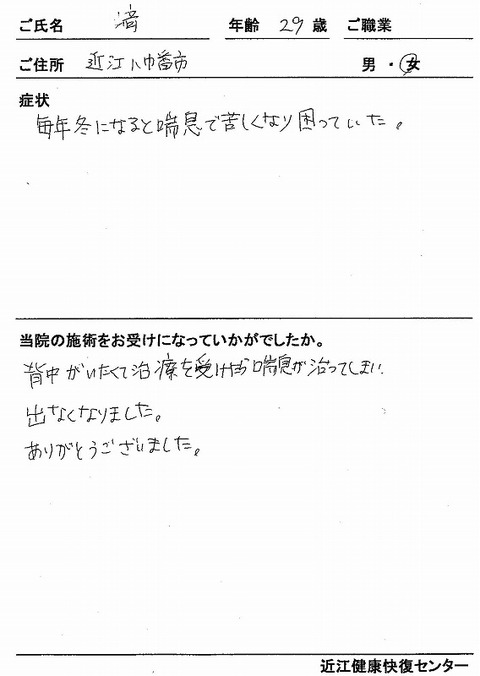 ご氏名 済 年齢 29 歳 ご職業
ご住所 近江八幡市 男・女
症状
毎年冬になると喘息で苦しくなり困っていた。
当院の施術をお受けになっていかがでしたか。
背中がいたくて治療を受けたら喘息が治ってしまい
出なくなりました。
ありがとうございました。
近江健康快復センター